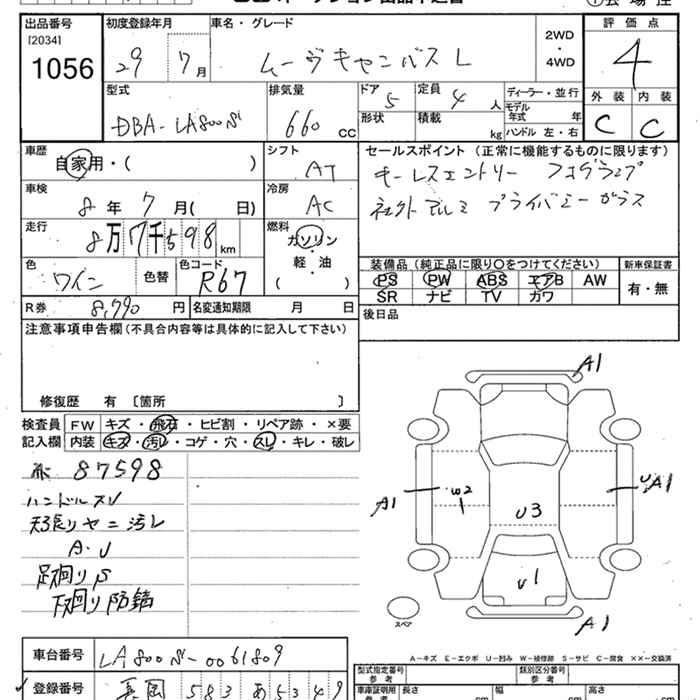 出品番号
[2034]
1056
初度登録年月
29 7 月
車名・グレード
ムーヴキャンバス L
2WD
・
4WD
評価点
4
外装 内装
C C
型式
DBA-LA800S
排気量
660 cc
ドア 5
定員 4 人
ディーラー・並行
形状
積載 kg
モデル年式 年
ハンドル 左・右
車歴
自家用・( )
シフト
AT
車検
8 年 7 月( 日)
冷房
AC
走行
8万7千598 km
燃料
ガソリン
軽・油
( )
色
ワイン
色替
色コード
R67
R券 8,790 円
名変通知期限 月 日
セールスポイント (正常に機能するものに限ります)
キーレスエントリー フォグランプ
社外アルミ プライバシーガラス
装備品 (純正品に限り○をつけてください)
PS PW ABS エアB AW
SR ナビ TV カワ
新車保証書
有・無
後日品
注意事項申告欄 (不具合内容等は具体的に記入して下さい)
修復歴 有 [箇所 ]
検査員
記入欄
FW キズ・飛石・ヒビ割・リペア跡・×要
内装 キズ・汚レ・コゲ・穴・スレ・キレ・破レ
87598
ハンドルスレ
天張りヤニ汚レ
A・U
足廻りS
下廻り防錆
A1
A1
W2
U3
UA1
U1
A1
スペア
A-キズ E-エクボ U-凹み W-補修跡 S-サビ C-腐食 ××-交換済
車台番号 LA800S-0061809
登録番号 583 あ5349
型式指定番号
参考
類別区分番号
参考
車庫証明用
参考
長さ cm
幅 cm
高さ cm